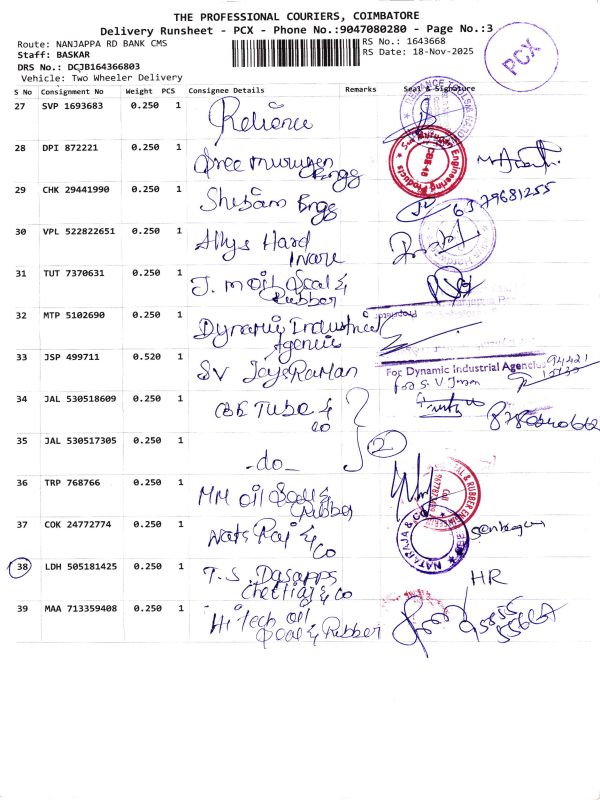 THE PROFESSIONAL COURIERS, COIMBATORE
Delivery Runsheet - PCX - Phone No.:9047080280 - Page No.:3
Route: NANJAPPA RD BANK CMS
RS No.: 1643668
Staff: BASKAR
RS Date: 18-Nov-2025
DRS No.: DCJB164366803
Vehicle: Two Wheeler Delivery
PCX
S No Consignment No Weight PCS Consignee Details Remarks Seal & Signature
27 SVP 1693683 0.250 1 Reliance
28 DPI 872221 0.250 1 Sree Murugen
Engg
Sri Murugan Engineering Products
CBE-45
29 CHK 29441990 0.250 1 Shibam Engg
6379681255
30 VPL 522822651 0.250 1 Allys Hard
ware
31 TUT 7370631 0.250 1 J.M Oil Seal &
Rubber
32 MTP 5102690 0.250 1 Dynamic Industrial
Agencies
For Dynamic Industrial Agencies
33 JSP 499711 0.520 1 SV JayaRaman
for S. V
34 JAL 530518609 0.250 1 CBE Tube &
co
35 JAL 530517305 0.250 1 -do-
2
36 TRP 768766 0.250 1 MM Oil Seal &
Rubber
37 COK 24772774 0.250 1 Nats Raj &
Co
NATARAJA & CO
38 LDH 505181425 0.250 1 T.S. Dasapps
Chettiar & co
HR
39 MAA 713359408 0.250 1 Hitech Oil
Seal & Rubber